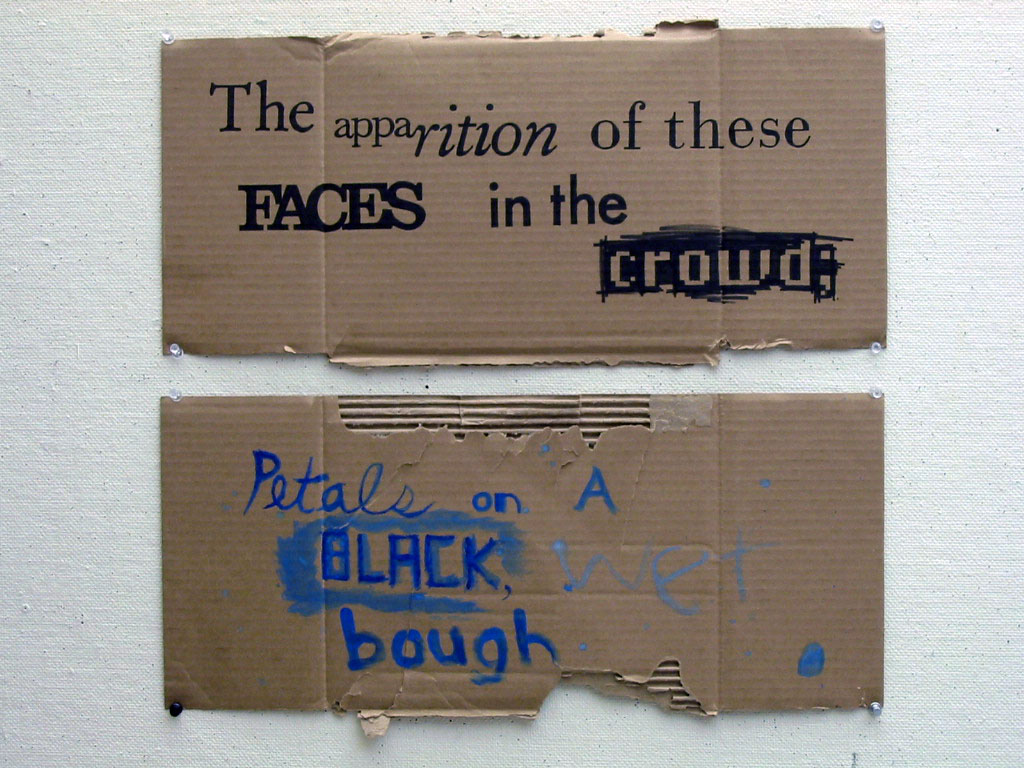 The apparition of these
FACES in the
crowd;
Petals on A
BLACK, wet
bough